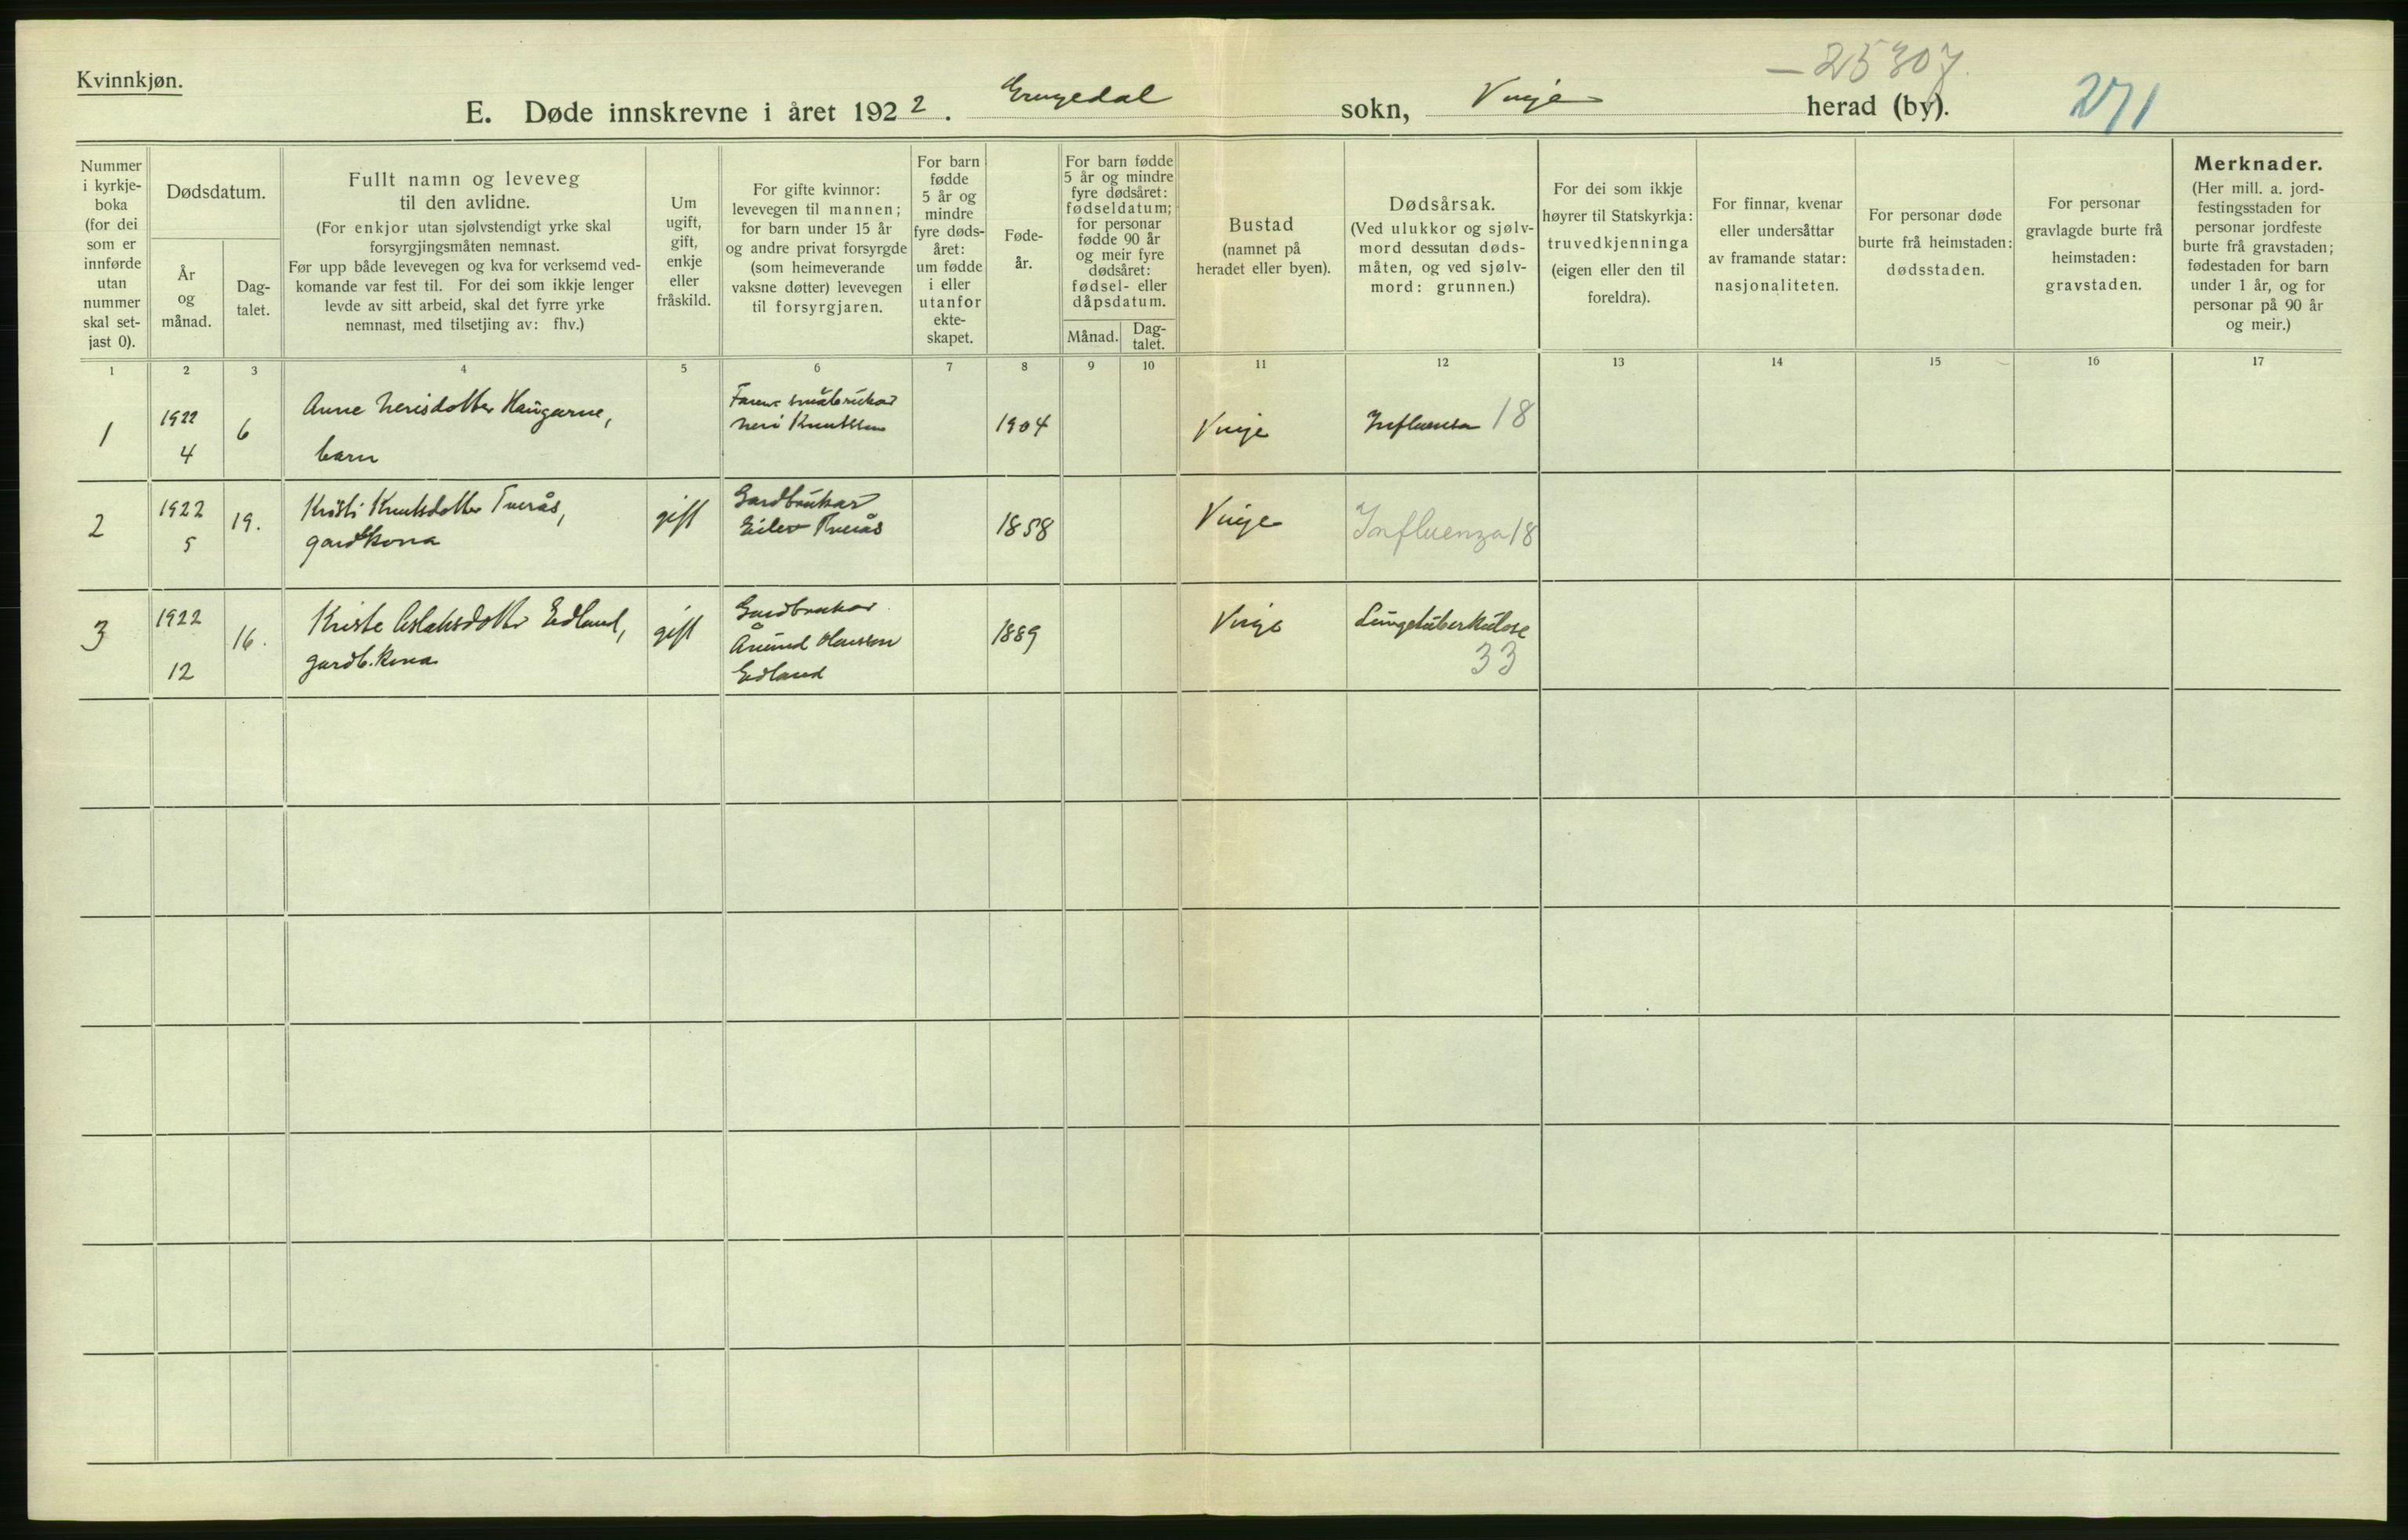 Kvinnkjøn.
— 25307
271
E. Døde innskrevne i året 1922. Grungedal sokn, Vinje herad (by).
Nummer
i kyrkje-
boka
(for dei
som er
innførde
utan
nummer
skal set-
jast 0).
Dødsdatum.
År
og
månad.
Dag-
talet.
Fullt namn og leveveg
til den avlidne.
(For enkjor utan sjølvstendigt yrke skal
forsyrgjingsmåten nemnast.
Før upp både levevegen og kva for verksemd ved-
komande var fest til. For dei som ikkje lenger
levde av sitt arbeid, skal det fyrre yrke
nemnast, med tilsetjing av: fhv.)
Um
ugift,
gift,
enkje
eller
fråskild.
For gifte kvinnor:
levevegen til mannen;
for barn under 15 år
og andre privat forsyrgde
(som heimeverande
vaksne døtter) levevegen
til forsyrgjaren.
For barn
fødde
5 år og
mindre
fyre døds-
året:
um fødde
i eller
utanfor
ekte-
skapet.
Føde-
år.
For barn fødde
5 år og mindre
fyre dødsåret:
fødseldatum;
for personar
fødde 90 år
og meir fyre
dødsåret:
fødsel- eller
dåpsdatum.
Månad.
Dag-
talet.
Bustad
(namnet på
heradet eller byen).
Dødsårsak.
(Ved ulukkor og sjølv-
mord dessutan døds-
måten, og ved sjølv-
mord: grunnen.)
For dei som ikkje
høyrer til Statskyrkja:
truvedkjenninga
(eigen eller den til
foreldra).
For finnar, kvenar
eller undersåttar
av framande statar:
nasjonaliteten.
For personar døde
burte frå heimstaden:
dødsstaden.
For personar
gravlagde burte frå
heimstaden:
gravstaden.
Merknader.
(Her mill. a. jord-
festingsstaden for
personar jordfeste
burte frå gravstaden;
fødestaden for barn
under 1 år, og for
personar på 90 år
og meir.)
1 2 3 4 5 6 7 8 9 10 11 12 13 14 15 16 17
1
1922
4
6
Anne Nerisdotter Haugarne,
barn
småbrukar
Neri Knutsson
1904
Vinje
Influensa 18
2
1922
5
19.
Kristi Knutsdotter Tverås,
gardkona
gift
Gardbrukar
Eilev Tverås
1858
Vinje
Influenza 18
3
1922
12
16.
Kriste Aslaksdotter Edland,
gardb.kona
gift
Gardbrukar
Åmund Olavsson
Edland
1889
Vinje
Lungetuberkulose
33